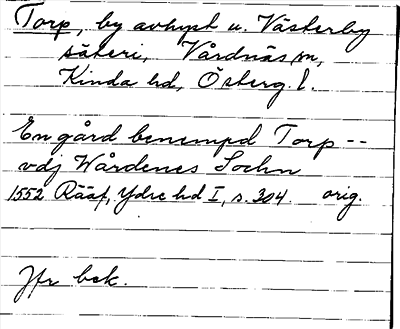 Torp, by avhyst u. Västerby
säteri, Vårdnäs sn,
Kinda hd, Österg. l.
En gård benempd Torp --
vdj Wårdenes Sochn
1552 Rääf, Ydre hd I, s. 304. orig.
Jfr bek.